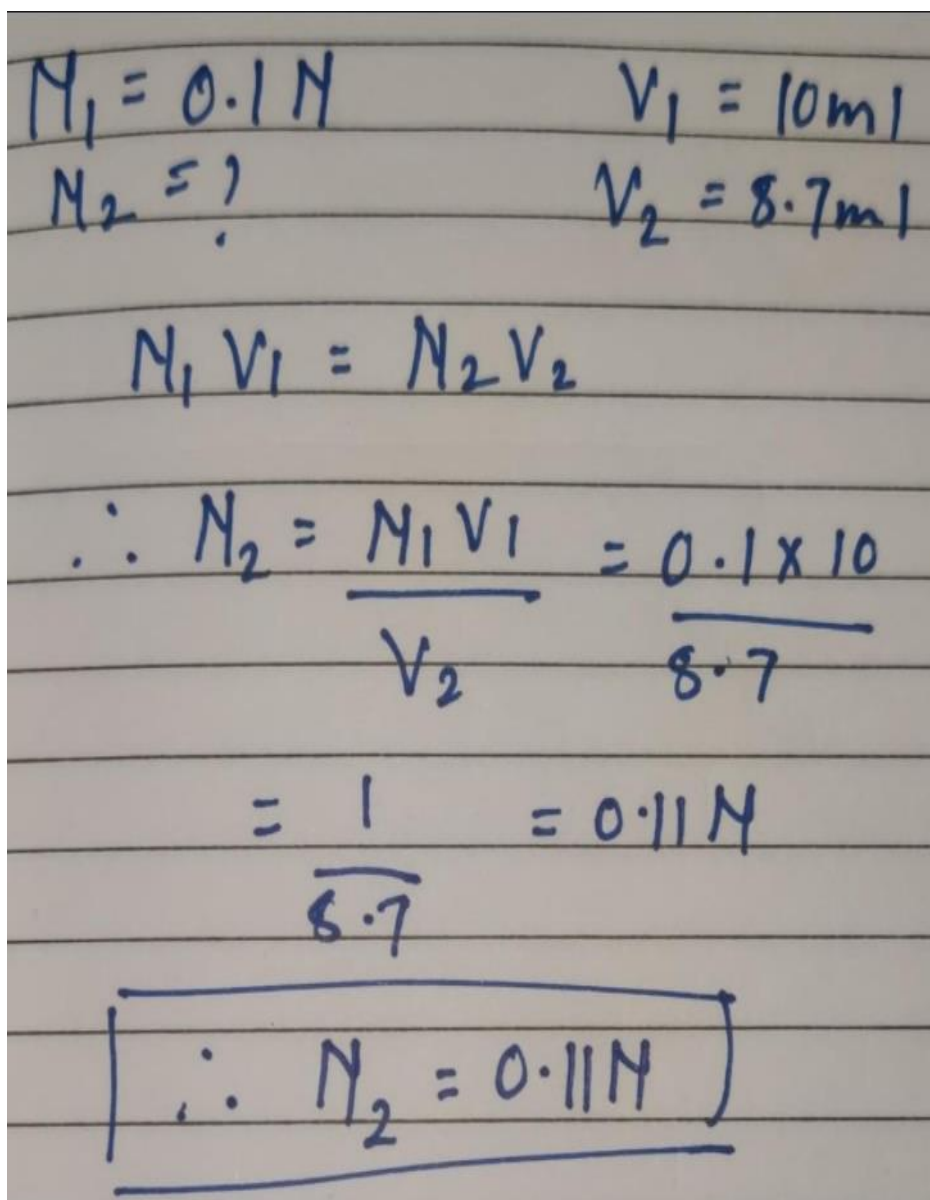 N₁ = 0.1 N V₁ = 10ml
N₂ = ? V₂ = 8.7ml
N₁ V₁ = N₂ V₂
∴ N₂ = N₁ V₁ / V₂ = 0.1 x 10 / 8.7
= 1 / 8.7 = 0.11 N
∴ N₂ = 0.11N